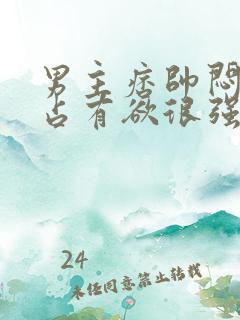 男主痞帅闷
占有欲很强
24
未经同意禁止转载